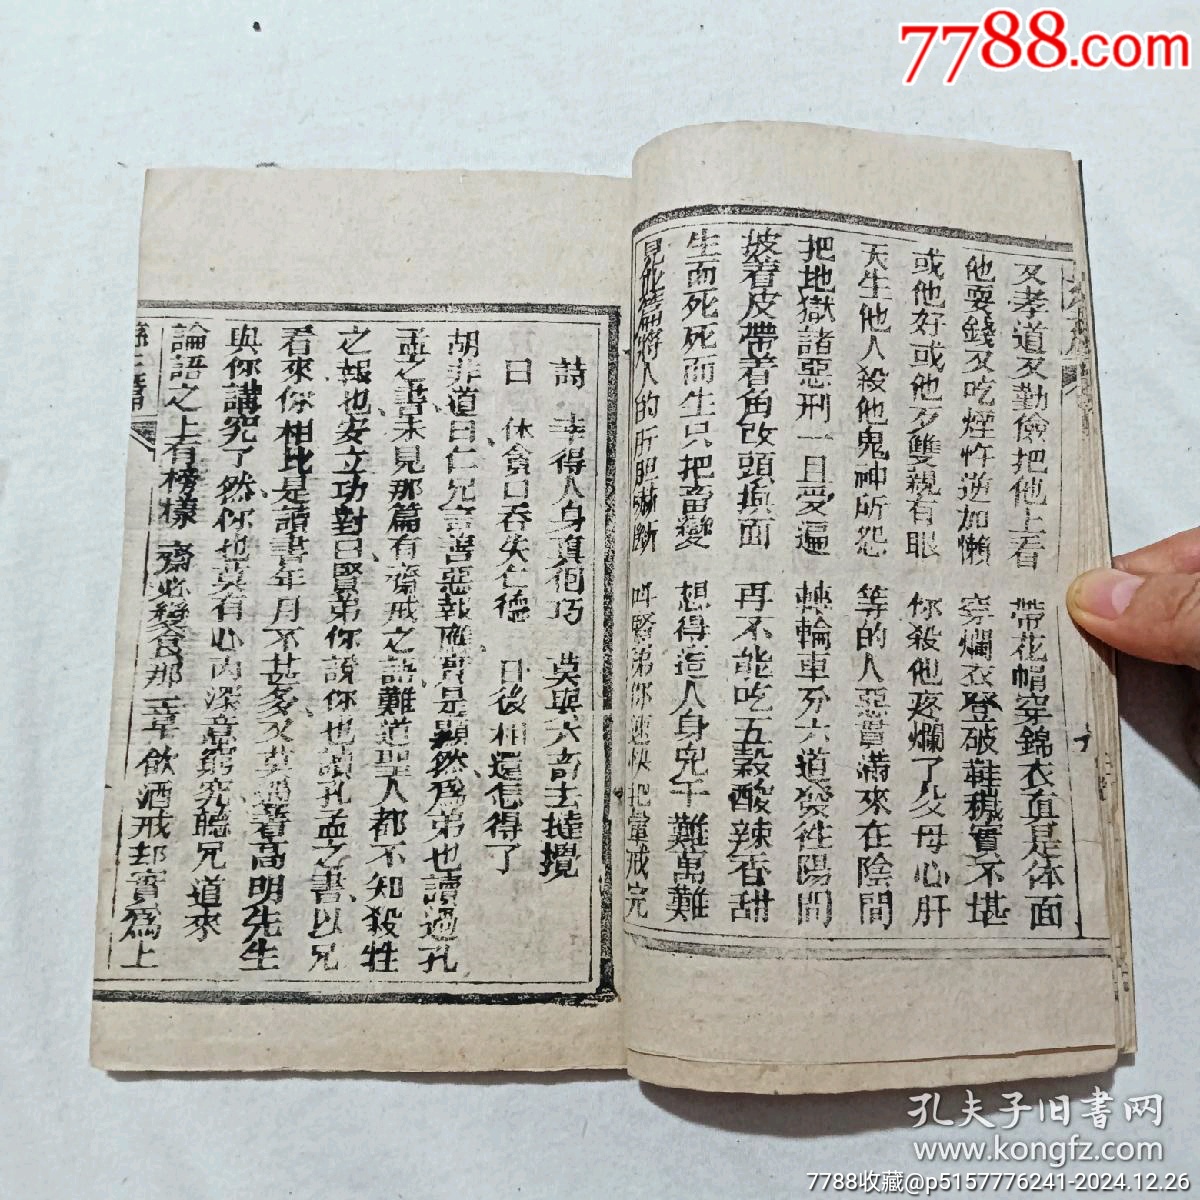 7788.com
又孝道又勤儉把他上看 帶花帽穿錦衣真是体面
他耍錢又吃煙忤逆加懶 穿爛衣登破鞋 實不堪
或他好或他歹雙親有眼 你殺他疼爛了父母心肝
天生他人殺他鬼神所怨 等的人惡貫滿來在陰間
把地獄諸惡刑一旦受遍 轉輪車分六道發往陽間
披着皮帶着角改頭換面 再不能吃五穀酸辣香甜
生而死死而生只把畜變 想得造人身兒千難萬難
見 人的所胆 斷 賢弟你速快把葷戒完
詩 幸得人身真 巧 莫與六畜去 攪
曰 休貪口吞失仁德 日後相還怎得了
胡非道曰仁兄言善惡報應實是顯然爲弟也讀過孔
孟之書未見那篇有齋戒之語難道聖人都不知殺牲
之報也安立功對曰賢弟你說你也讀孔孟之書以兄
看來你相比是讀書年月不甚多又莫遇著高明先生
與你講究了然你也莫有心內深意窮究聽兄道來
論語之上有榜樣 齋必變食那一章 飲酒戒却實爲上
孔夫子旧书网
www.kongfz.com
7788收藏@p5157776241-2024.12.26